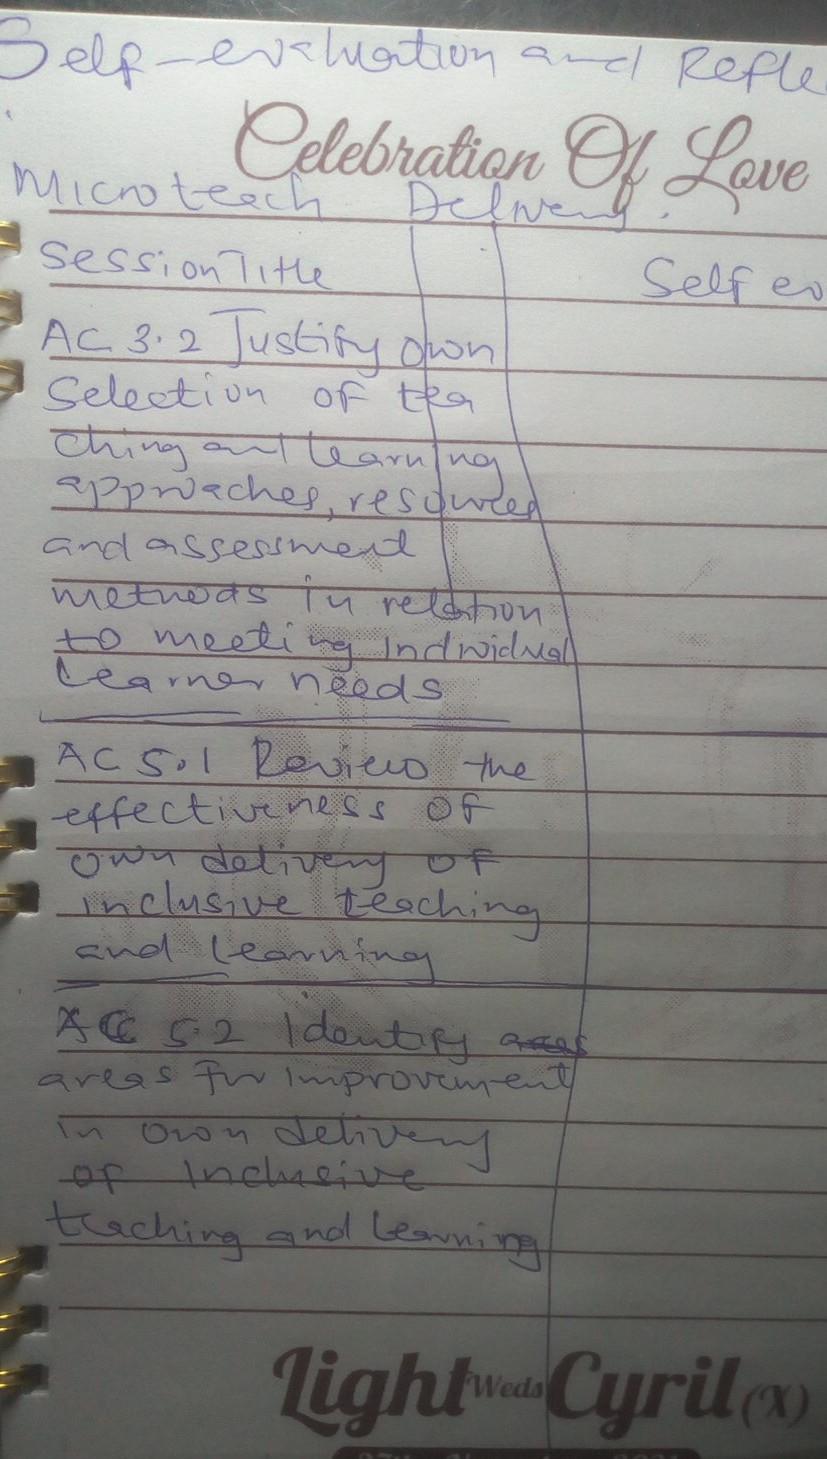 Self-evaluation and Refle
Celebration Of Love
Microteach Delivery.
Session Title
Self ev
AC 3.2 Justify own
Selection of tea
ching and learning
approaches, resources
and assessment
methods in relation
to meeting individual
Learner needs
AC 5.1 Review the
effectiveness of
own delivery of
inclusive teaching
and Learning
AC 5.2 Identify areas
areas for improvement
in own delivery
of Inclusive
teaching and Learning
Light Weds Cyril (X)